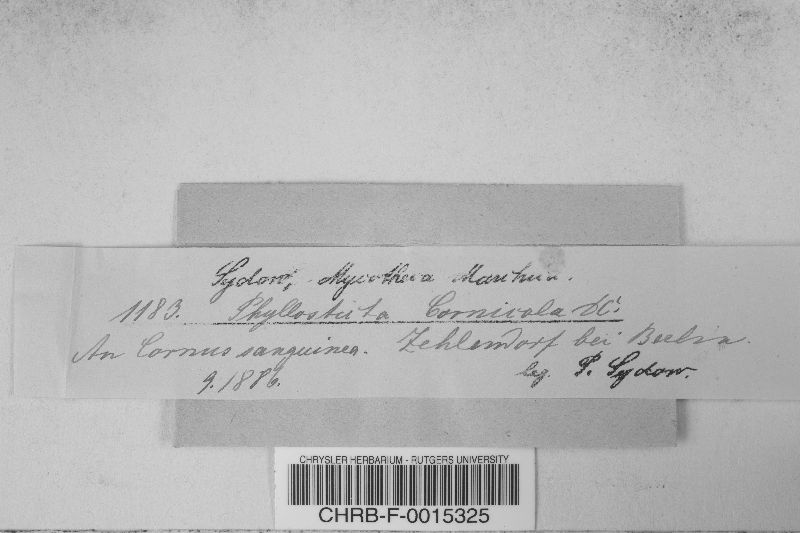 Sydow, Mycotheca Marchica.
1183. Phyllosticta Cornicola DC.
An Cornus sanguinea. Zehlendorf bei Berlin.
9.1886. leg. P. Sydow.
CHRYSLER HERBARIUM - RUTGERS UNIVERSITY
CHRB-F-0015325